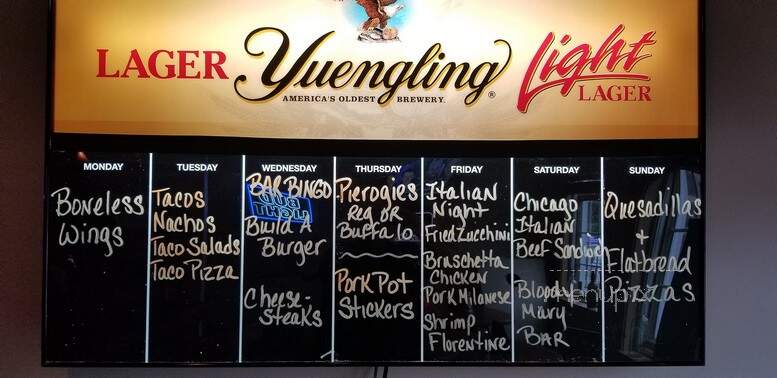 LAGER Yuengling Light
AMERICA'S OLDEST BREWERY. ® LAGER
MONDAY
Boneless
Wings
TUESDAY
Tacos
Nachos
Taco Salads
Taco Pizza
WEDNESDAY
BAR BINGO
BUD
LIGHT
Build A
Burger
Cheese-
Steaks
THURSDAY
Pierogies
Reg OR
Buffalo
Pork Pot
Stickers
FRIDAY
Italian
Night
Fried Zucchini
Bruschetta
Chicken
Pork Milanese
Shrimp
Florentine
SATURDAY
Chicago
Italian
Beef
Bloody
Mary
BAR
SUNDAY
Quesadillas
+
Flatbread
Pizzas